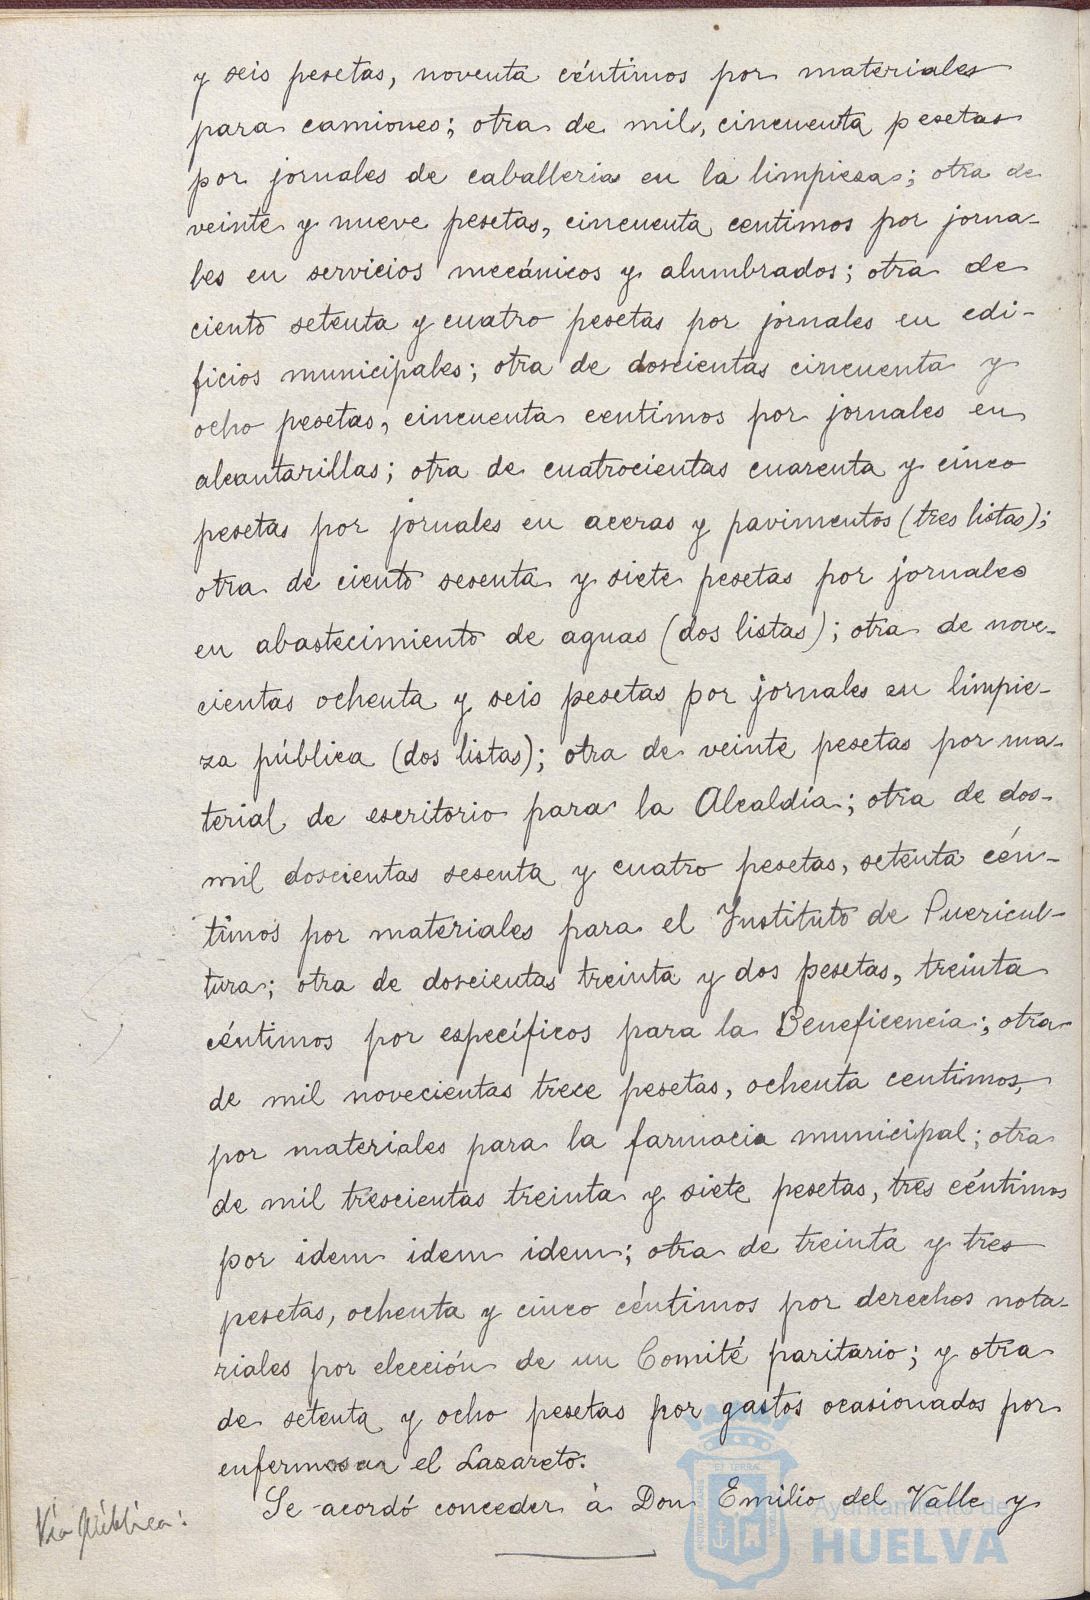 y seis pesetas, noventa céntimos por materiales
para camiones; otra de mil, cincuenta pesetas
por jornales de caballerias en la limpieza; otra de
veinte y nueve pesetas, cincuenta centimos por jorna-
les en servicios mecánicos y alumbrados; otra de
ciento setenta y cuatro pesetas por jornales en edi-
ficios municipales; otra de doscientas cincuenta y
ocho pesetas, cincuenta centimos por jornales en
alcantarillas; otra de cuatrocientas cuarenta y cinco
pesetas por jornales en aceras y pavimentos (tres listas);
otra de ciento sesenta y siete pesetas por jornales
en abastecimiento de aguas (dos listas); otra de nove-
cientas ochenta y seis pesetas por jornales en limpie-
za pública (dos listas); otra de veinte pesetas por ma-
terial de escritorio para la Alcaldía; otra de dos-
mil doscientas sesenta y cuatro pesetas, setenta cén-
timos por materiales para el Instituto de Puericul-
tura; otra de doscientas treinta y dos pesetas, treinta
céntimos por específicos para la Beneficencia; otra
de mil novecientas trece pesetas, ochenta centimos,
por materiales para la farmacia municipal; otra
de mil trescientas treinta y siete pesetas, tres céntimos
por idem idem idem; otra de treinta y tres
pesetas, ochenta y cinco céntimos por derechos nota-
riales por elección de un Comité paritario; y otra
de setenta y ocho pesetas por gastos ocasionados por
enfermos en el Lazareto.
Vía Pública:
Se acordó conceder à Don Emilio del Valle y
Ayuntamiento de
HUELVA